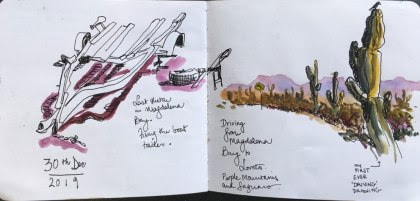 Last throw
in Magdalena
Bay.
Fixing the boat
trailer.
30th Dec
2019
Driving
from
Magdalena
Bay to
Loreto
Purple Mountains
and Saguaro
my
FIRST
EVER
'DRIVING'
DRAWING